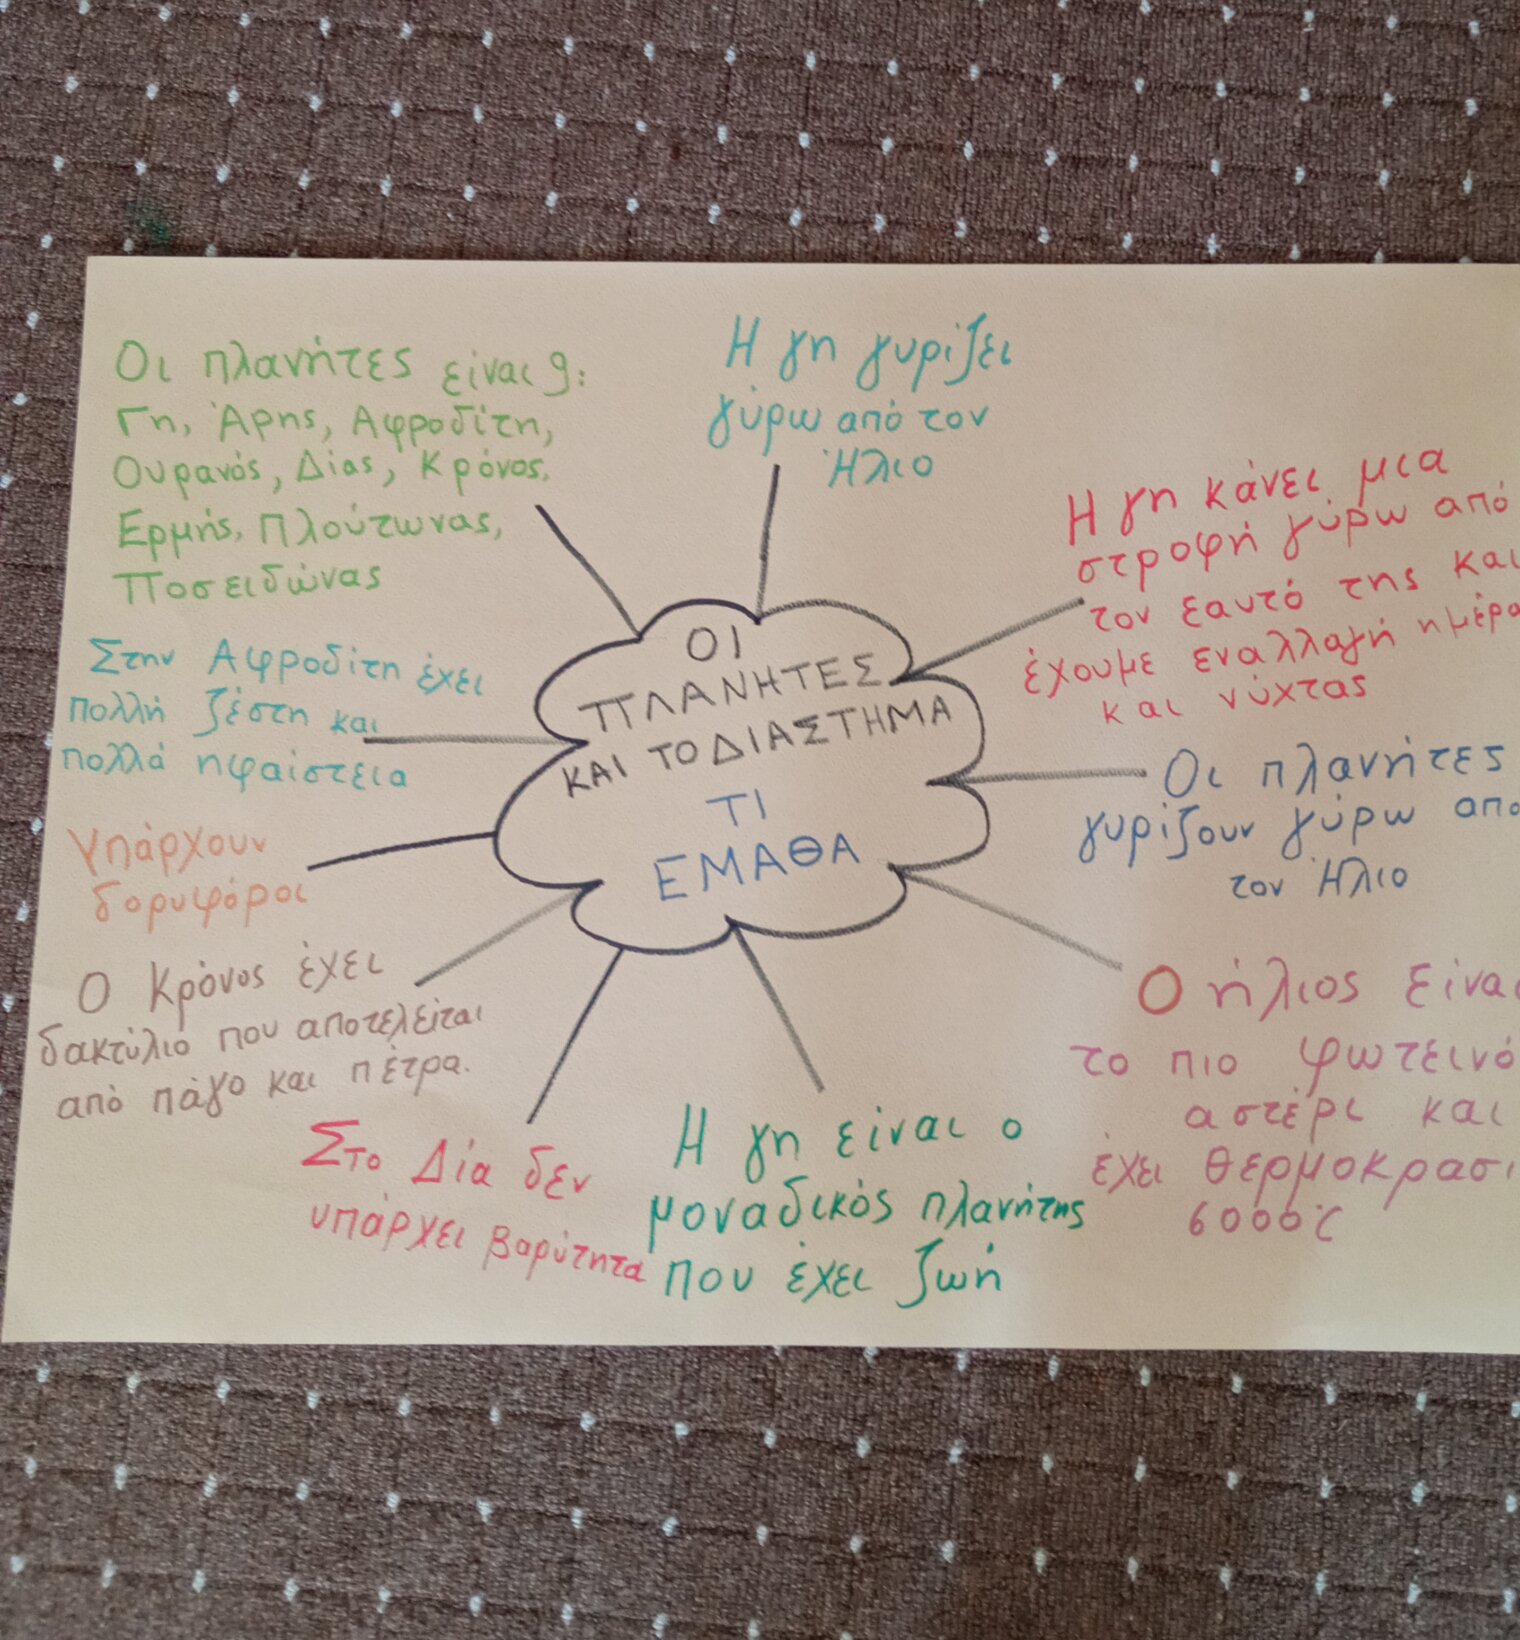 Οι πλανήτες είναι 9:
Γη, Άρης, Αφροδίτη,
Ουρανός, Δίας, Κρόνος,
Ερμής, Πλούτωνας,
Ποσειδώνας
Η γη γυρίζει
γύρω από τον
Ήλιο
Η γη κάνει μια
στροφή γύρω από
τον εαυτό της και
έχουμε εναλλαγή ημέρα
και νύχτας
ΟΙ
ΠΛΑΝΗΤΕΣ
ΚΑΙ ΤΟ ΔΙΑΣΤΗΜΑ
ΤΙ
ΕΜΑΘΑ
Στην Αφροδίτη έχει
πολλή ζέστη και
πολλά ηφαίστεια
Οι πλανήτες
γυρίζουν γύρω απο
τον Ήλιο
Υπάρχουν
δορυφόροι
Ο Κρόνος έχει
δακτύλιο που αποτελείται
από πάγο και πέτρα.
Ο ήλιος είναι
το πιο φωτεινό
αστέρι και
έχει θερμοκρασι
6000°C
Στο Δία δεν
υπάρχει βαρύτητα
Η γη είναι ο
μοναδικός πλανήτης
που έχει ζωή